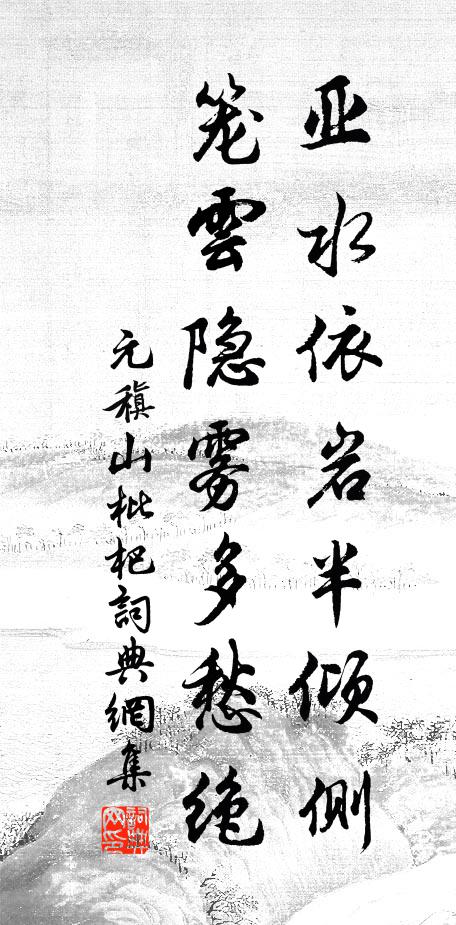 亚水依岩半倾侧
笼雲隐雾多愁绝
元稹山枇杷詞典網集